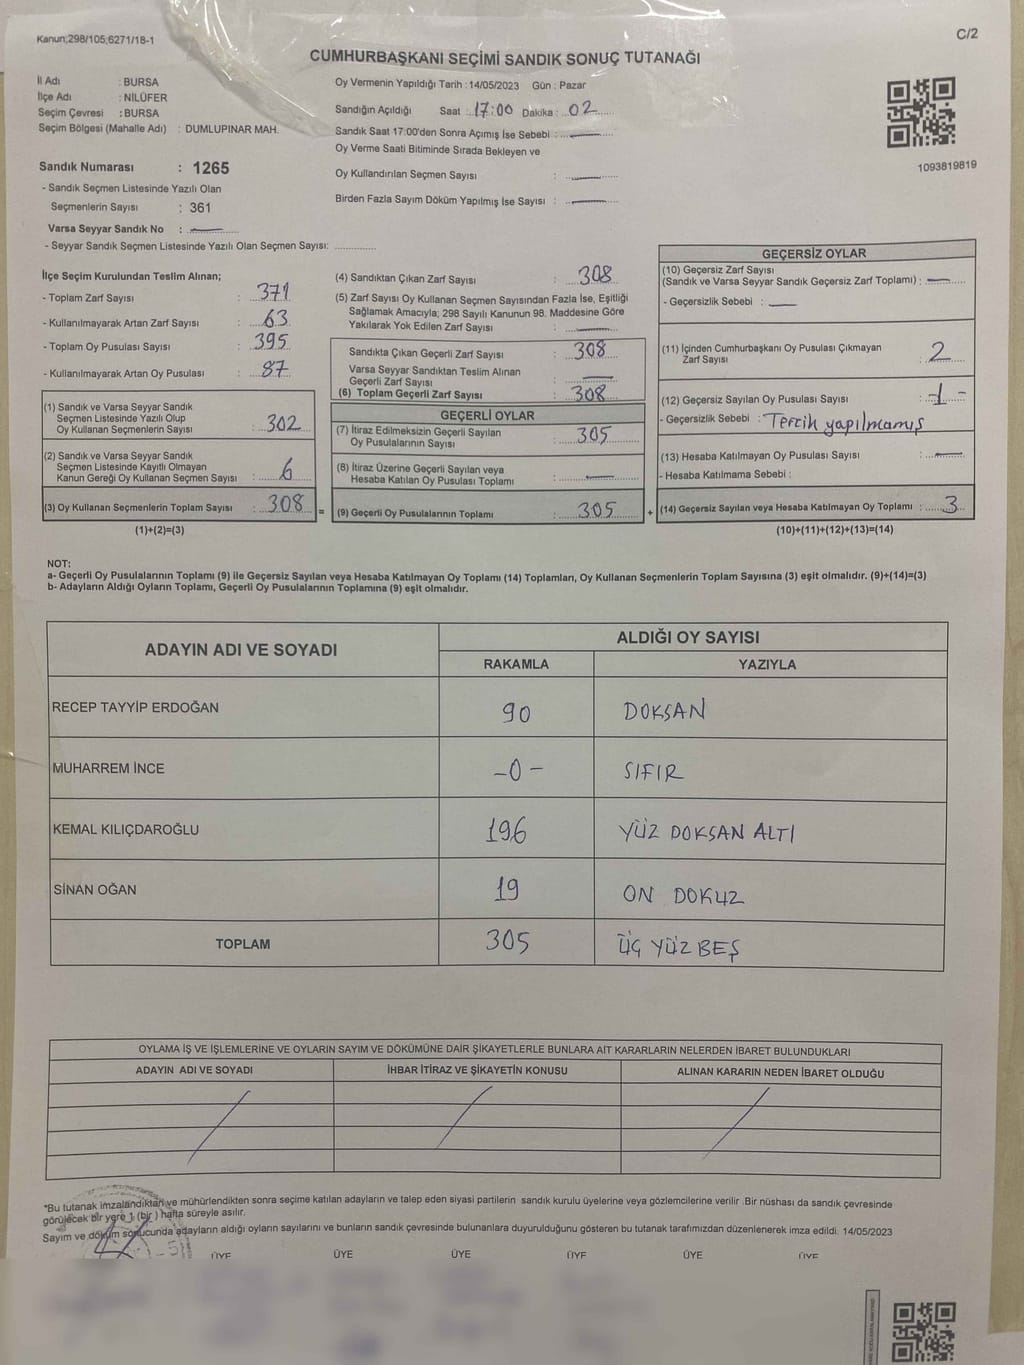 Kanun;298/105;6271/18-1
C/2
CUMHURBAŞKANI SEÇİMİ SANDIK SONUÇ TUTANAĞI
İl Adı : BURSA
İlçe Adı : NİLÜFER
Seçim Çevresi : BURSA
Seçim Bölgesi (Mahalle Adı) : DUMLUPINAR MAH.
Oy Vermenin Yapıldığı Tarih : 14/05/2023 Gün : Pazar
Sandığın Açıldığı Saat : 17:00 Dakika : 02
Sandık Saat 17:00'den Sonra Açımış İse Sebebi :
Oy Verme Saati Bitiminde Sırada Bekleyen ve
Oy Kullandırılan Seçmen Sayısı :
Birden Fazla Sayım Döküm Yapılmış İse Sayısı :
1093819819
Sandık Numarası : 1265
- Sandık Seçmen Listesinde Yazılı Olan
Seçmenlerin Sayısı : 361
Varsa Seyyar Sandık No :
- Seyyar Sandık Seçmen Listesinde Yazılı Olan Seçmen Sayısı: ..............
İlçe Seçim Kurulundan Teslim Alınan;
- Toplam Zarf Sayısı : 371
- Kullanılmayarak Artan Zarf Sayısı : 63
- Toplam Oy Pusulası Sayısı : 395
- Kullanılmayarak Artan Oy Pusulası : 87
(1) Sandık ve Varsa Seyyar Sandık
Seçmen Listesinde Yazılı Olup
Oy Kullanan Seçmenlerin Sayısı : 302
(2) Sandık ve Varsa Seyyar Sandık
Seçmen Listesinde Kayıtlı Olmayan
Kanun Gereği Oy Kullanan Seçmen Sayısı : 6
(3) Oy Kullanan Seçmenlerin Toplam Sayısı : 308 =
(1)+(2)=(3)
(4) Sandıktan Çıkan Zarf Sayısı : 308
(5) Zarf Sayısı Oy Kullanan Seçmen Sayısından Fazla İse, Eşitliği
Sağlamak Amacıyla; 298 Sayılı Kanunun 98. Maddesine Göre
Yakılarak Yok Edilen Zarf Sayısı :
Sandıkta Çıkan Geçerli Zarf Sayısı : 308
Varsa Seyyar Sandıktan Teslim Alınan
Geçerli Zarf Sayısı :
(6) Toplam Geçerli Zarf Sayısı : 308
GEÇERLİ OYLAR
(7) İtiraz Edilmeksizin Geçerli Sayılan
Oy Pusulalarının Sayısı : 305
(8) İtiraz Üzerine Geçerli Sayılan veya
Hesaba Katılan Oy Pusulası Toplamı :
(9) Geçerli Oy Pusulalarının Toplamı : 305 +
GEÇERSİZ OYLAR
(10) Geçersiz Zarf Sayısı
(Sandık ve Varsa Seyyar Sandık Geçersiz Zarf Toplamı) :
- Geçersizlik Sebebi :
(11) İçinden Cumhurbaşkanı Oy Pusulası Çıkmayan
Zarf Sayısı : 2
(12) Geçersiz Sayılan Oy Pusulası Sayısı : -1-
- Geçersizlik Sebebi : Tercih yapılmamış
(13) Hesaba Katılmayan Oy Pusulası Sayısı :
- Hesaba Katılmama Sebebi :
(14) Geçersiz Sayılan veya Hesaba Katılmayan Oy Toplamı : 3
(10)+(11)+(12)+(13)=(14)
NOT:
a- Geçerli Oy Pusulalarının Toplamı (9) ile Geçersiz Sayılan veya Hesaba Katılmayan Oy Toplamı (14) Toplamları, Oy Kullanan Seçmenlerin Toplam Sayısına (3) eşit olmalıdır. (9)+(14)=(3)
b- Adayların Aldığı Oyların Toplamı, Geçerli Oy Pusulalarının Toplamına (9) eşit olmalıdır.
ADAYIN ADI VE SOYADI
ALDIĞI OY SAYISI
RAKAMLA YAZIYLA
RECEP TAYYİP ERDOĞAN 90 DOKSAN
MUHARREM İNCE -0- SIFIR
KEMAL KILIÇDAROĞLU 196 YÜZ DOKSAN ALTI
SİNAN OĞAN 19 ON DOKUZ
TOPLAM 305 ÜÇ YÜZ BEŞ
OYLAMA İŞ VE İŞLEMLERİNE VE OYLARIN SAYIM VE DÖKÜMÜNE DAİR ŞİKAYETLERLE BUNLARA AİT KARARLARIN NELERDEN İBARET BULUNDUKLARI
ADAYIN ADI VE SOYADI İHBAR İTİRAZ VE ŞİKAYETİN KONUSU ALINAN KARARIN NEDEN İBARET OLDUĞU
*Bu tutanak imzalandıktan ve mühürlendikten sonra seçime katılan adayların ve talep eden siyasi partilerin sandık kurulu üyelerine veya gözlemcilerine verilir .Bir nüshası da sandık çevresinde
görülecek bir yere 1 (bir ) hafta süreyle asılır.
Sayım ve döküm sonucunda adayların aldığı oyların sayılarını ve bunların sandık çevresinde bulunanlara duyurulduğunu gösteren bu tutanak tarafımızdan düzenlenerek imza edildi. 14/05/2023
ÜYE ÜYE ÜYE ÜYE ÜYE ÜYE